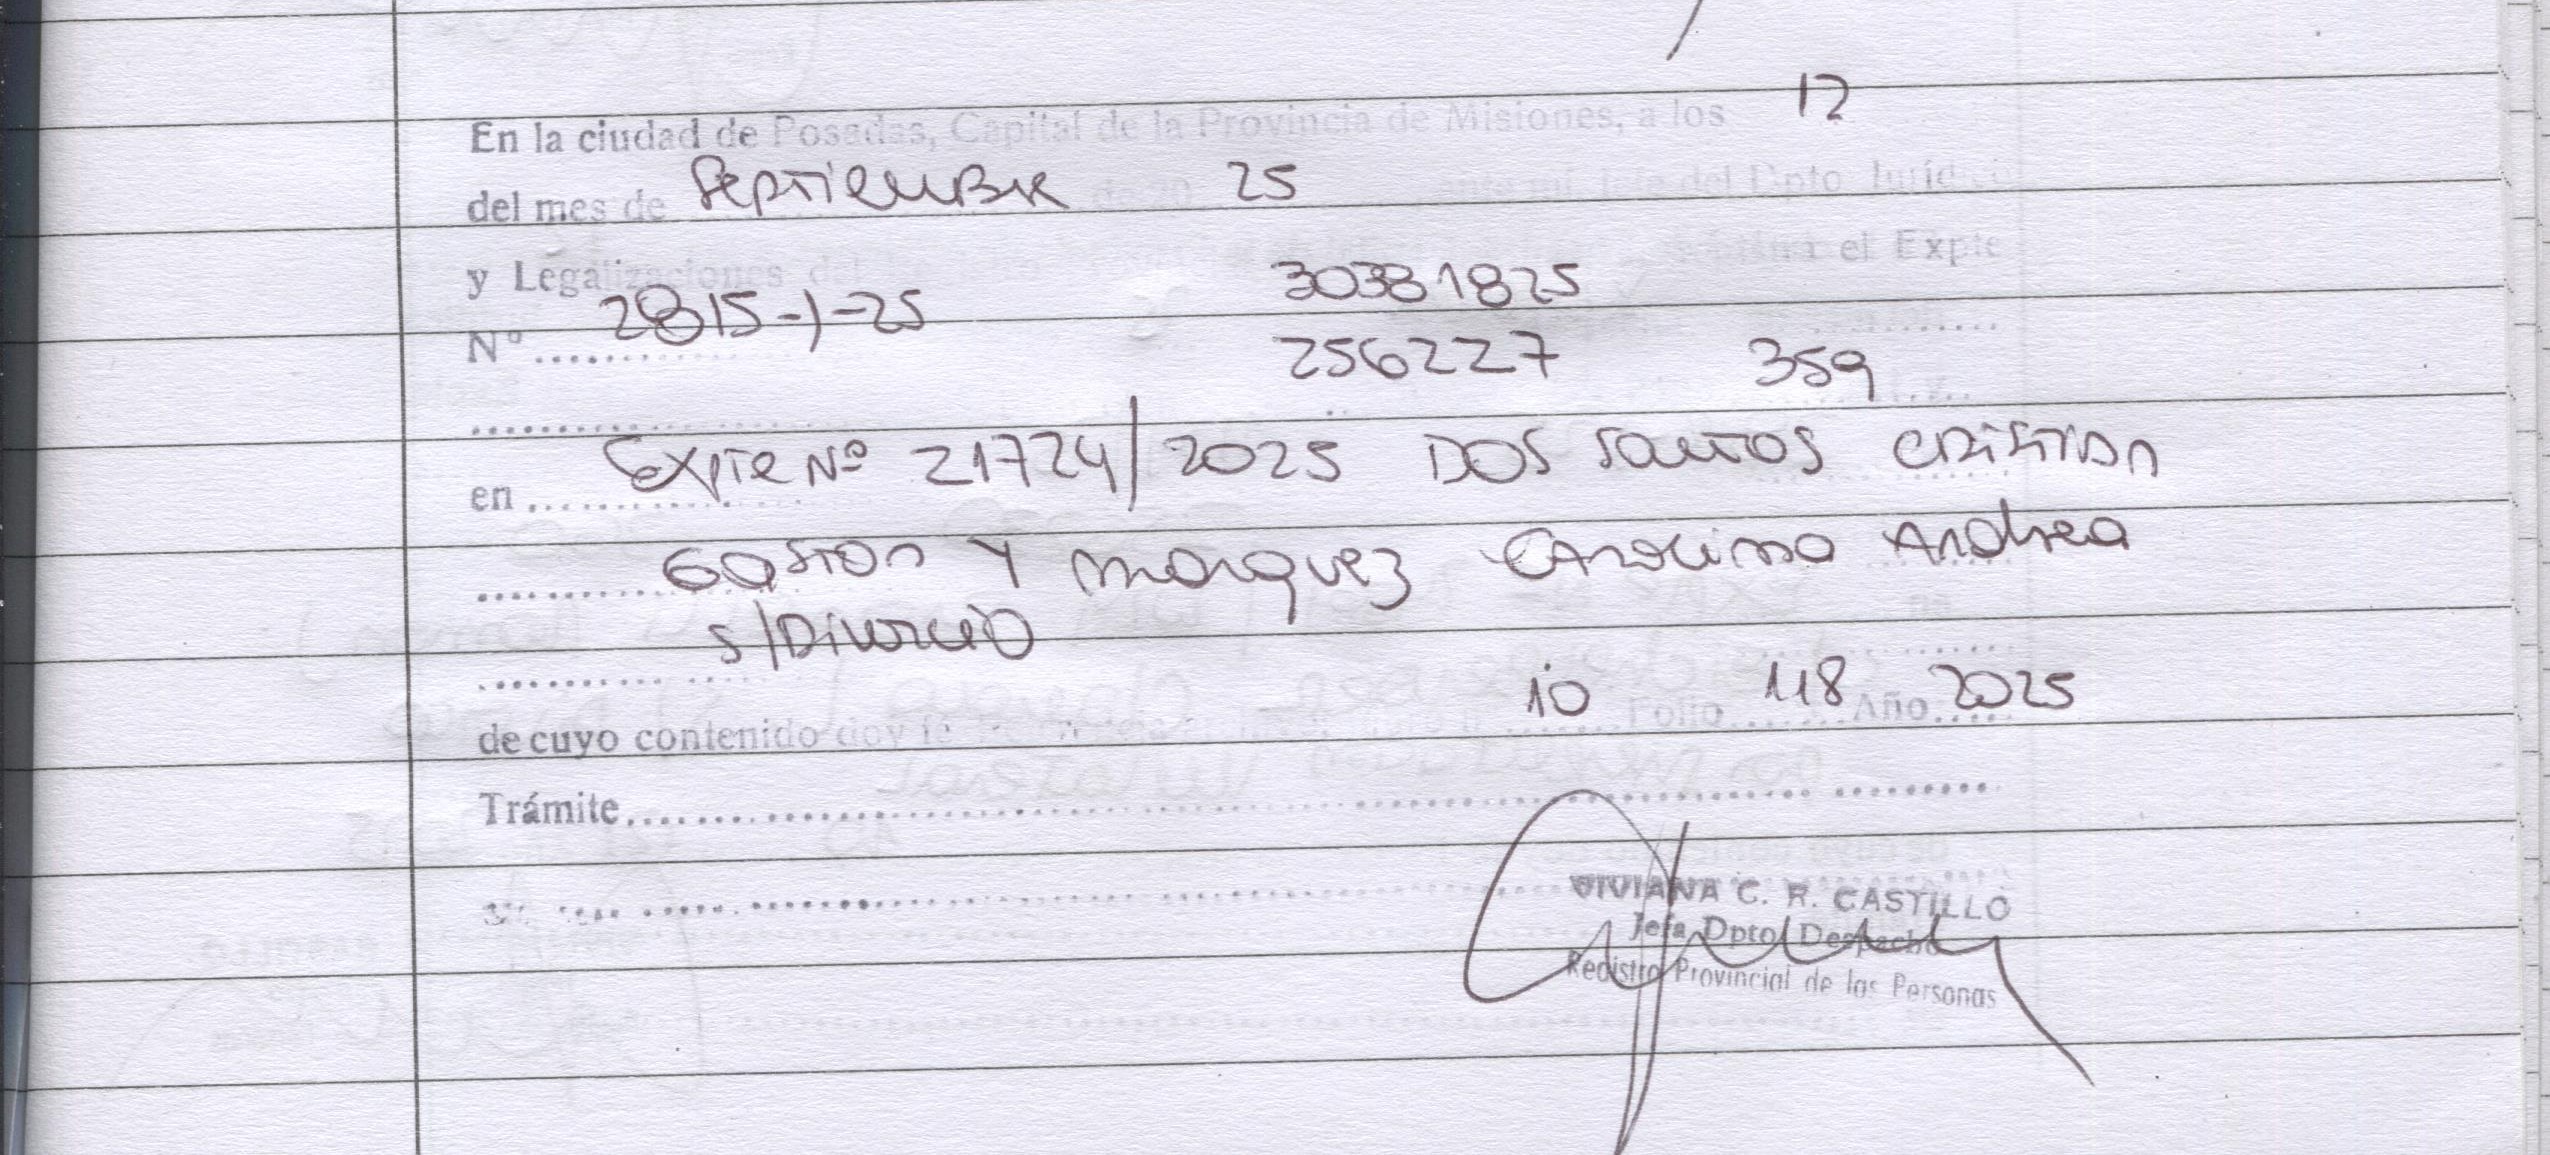 En la ciudad de Posadas, Capital de la Provincia de Misiones, a los 12
del mes de Septiembre de 20 25 ante mí, Jefa del Dpto Jurídico
y Legalizaciones del el Expte
30381825
Nº 2815-J-25
256227 359
en Expte Nº 21724/2025 DOS Santos Cristian
Gaston Y Marquez Carolina Andrea
s/Divorcio
de cuyo contenido doy fe 10 Folio 118 Año 2025
Trámite
VIVIANA C. R. CASTILLO
Jefa Dpto Despacho
Registro Provincial de las Personas